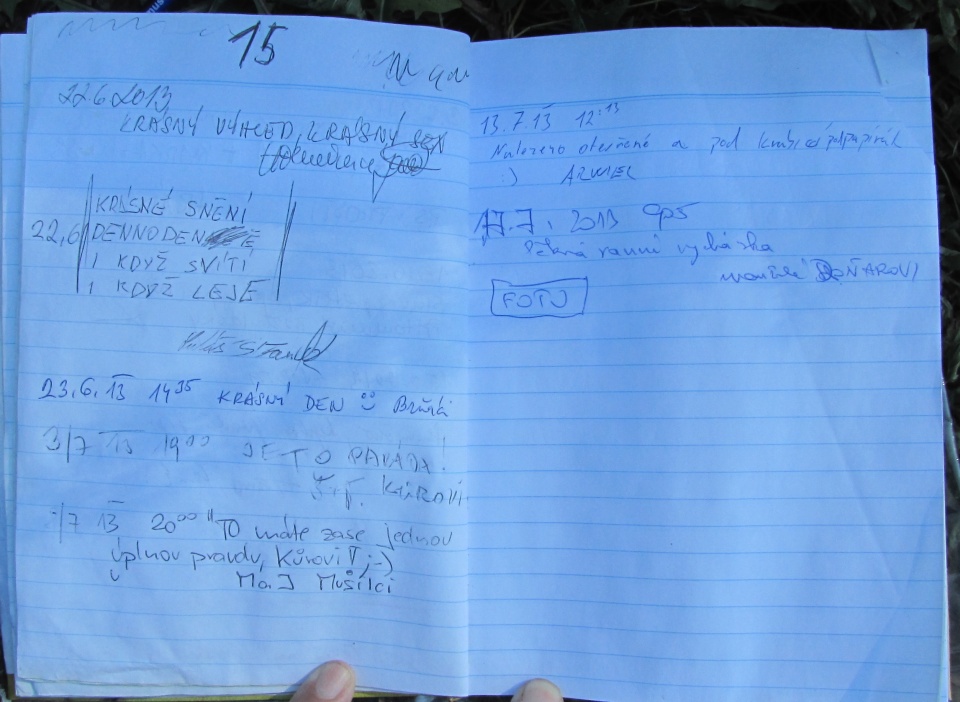 15
22 6 2013
KRÁSNÝ VÝHLED, KRÁSNÝ SEN
KRÁSNÉ SNĚNÍ
22,6 DENNODEN Ě
I KDYŽ SVÍTÍ
I KDYŽ LEJE
23.6.13 14 35 KRÁSNÝ DEN
3/7 13 19 JE TO PARÁDA!
KŮROVI
/7 13 20 00 "TO máte zase jednou
úplnou pravdu, Kůrovi", ;-)
M a J Mušílci
13.7.13 12:13
Nalezeno otevřené a pod
:) ARWEL
17.7. 2013 9 05
Pěkná ranní vycházka
manželé
FOTO